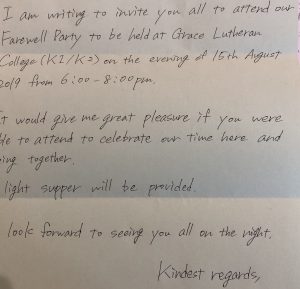 I am writing to invite you all to attend our
Farewell Party to be held at Grace Lutheran
College (K1/K2) on the evening of 15th August
2019 from 6:00-8:00pm.
It would give me great pleasure if you were
to attend to celebrate our time here and
together.
light supper will be provided.
look forward to seeing you all on the night.
Kindest regards,